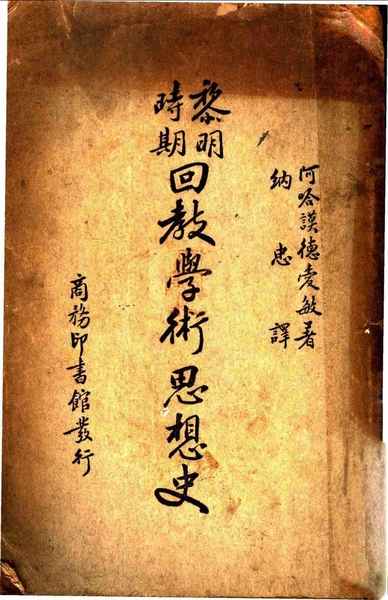 阿哈謨德愛敏著
納忠譯
黎明時期
回教學術思想史
商務印書館發行